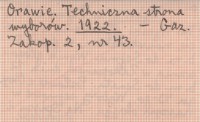 Orawie. Techniczna strona
wyborów. 1922. — Gaz.
Zakop. 2, nr 43.